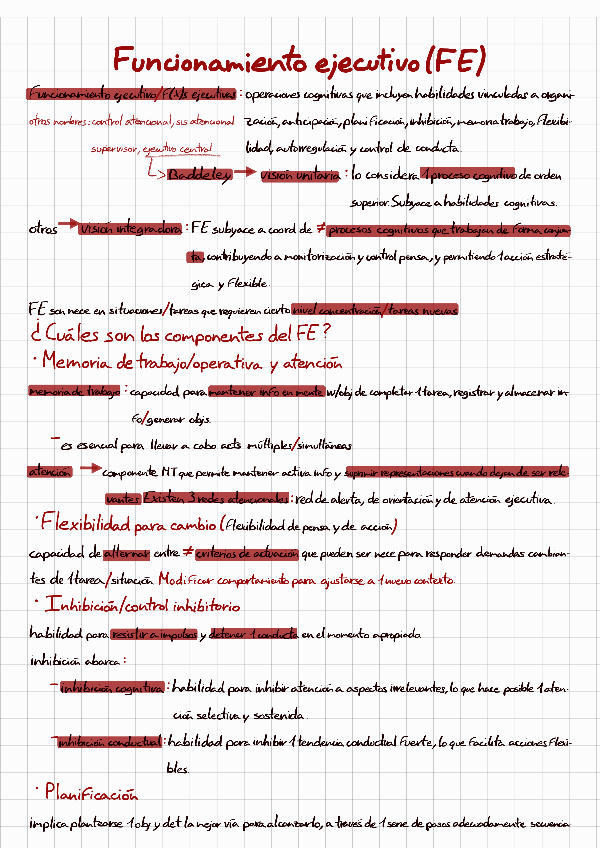 Funcionamiento ejecutivo (FE)
Funcionamiento ejecutivo/F(x)s ejecutivas: operaciones cognitivas que incluyen habilidades vinculadas a organi-
otros nombres: control atencional, sis atencional zación, anticipación, planificación, inhibición, memoria trabajo, flexibi-
supervisor, ejecutivo central lidad, autorregulación y control de conducta.
Baddeley → visión unitaria: lo considera 1 proceso cognitivo de orden
superior. Subyace a habilidades cognitivas.
otros → visión integradora: FE subyace a coord de ≠ procesos cognitivos que trabajan de forma conjun-
ta, contribuyendo a monitorización y control pensa, y permitiendo 1 acción estraté-
gica y flexible.
FE son nece en situaciones/tareas que requieren cierto nivel concentración/tareas nuevas
¿Cuáles son los componentes del FE?
· Memoria de trabajo/operativa y atención
memoria de trabajo: capacidad para mantener info en mente w/obj de completar 1 tarea, registrar y almacenar in-
fo/generar objs.
- es esencial para llevar a cabo acts múltiples/simultáneas
atención → componente MT que permite mantener activa info y suprimir representaciones cuando dejan de ser rele-
vantes Existen 3 redes atencionales: red de alerta, de orientación y de atención ejecutiva.
· Flexibilidad para cambio (flexibilidad de pensa y de acción)
capacidad de alternar entre ≠ criterios de actuación que pueden ser nece para responder demandas cambian-
tes de 1 tarea/situación Modificar comportamiento para ajustarse a 1 nuevo contexto.
· Inhibición/control inhibitorio
habilidad para resistir a impulsos y detener 1 conducta en el momento apropiado
inhibición abarca:
- inhibición cognitiva: habilidad para inhibir atención a aspectos irrelevantes, lo que hace posible 1 aten-
ción selectiva y sostenida.
- inhibición conductual: habilidad para inhibir 1 tendencia conductual fuerte, lo que facilita acciones flexi-
bles.
· Planificación
implica plantearse 1 obj y det la mejor vía para alcanzarlo, a través de 1 serie de pasos adecuadamente secuencia